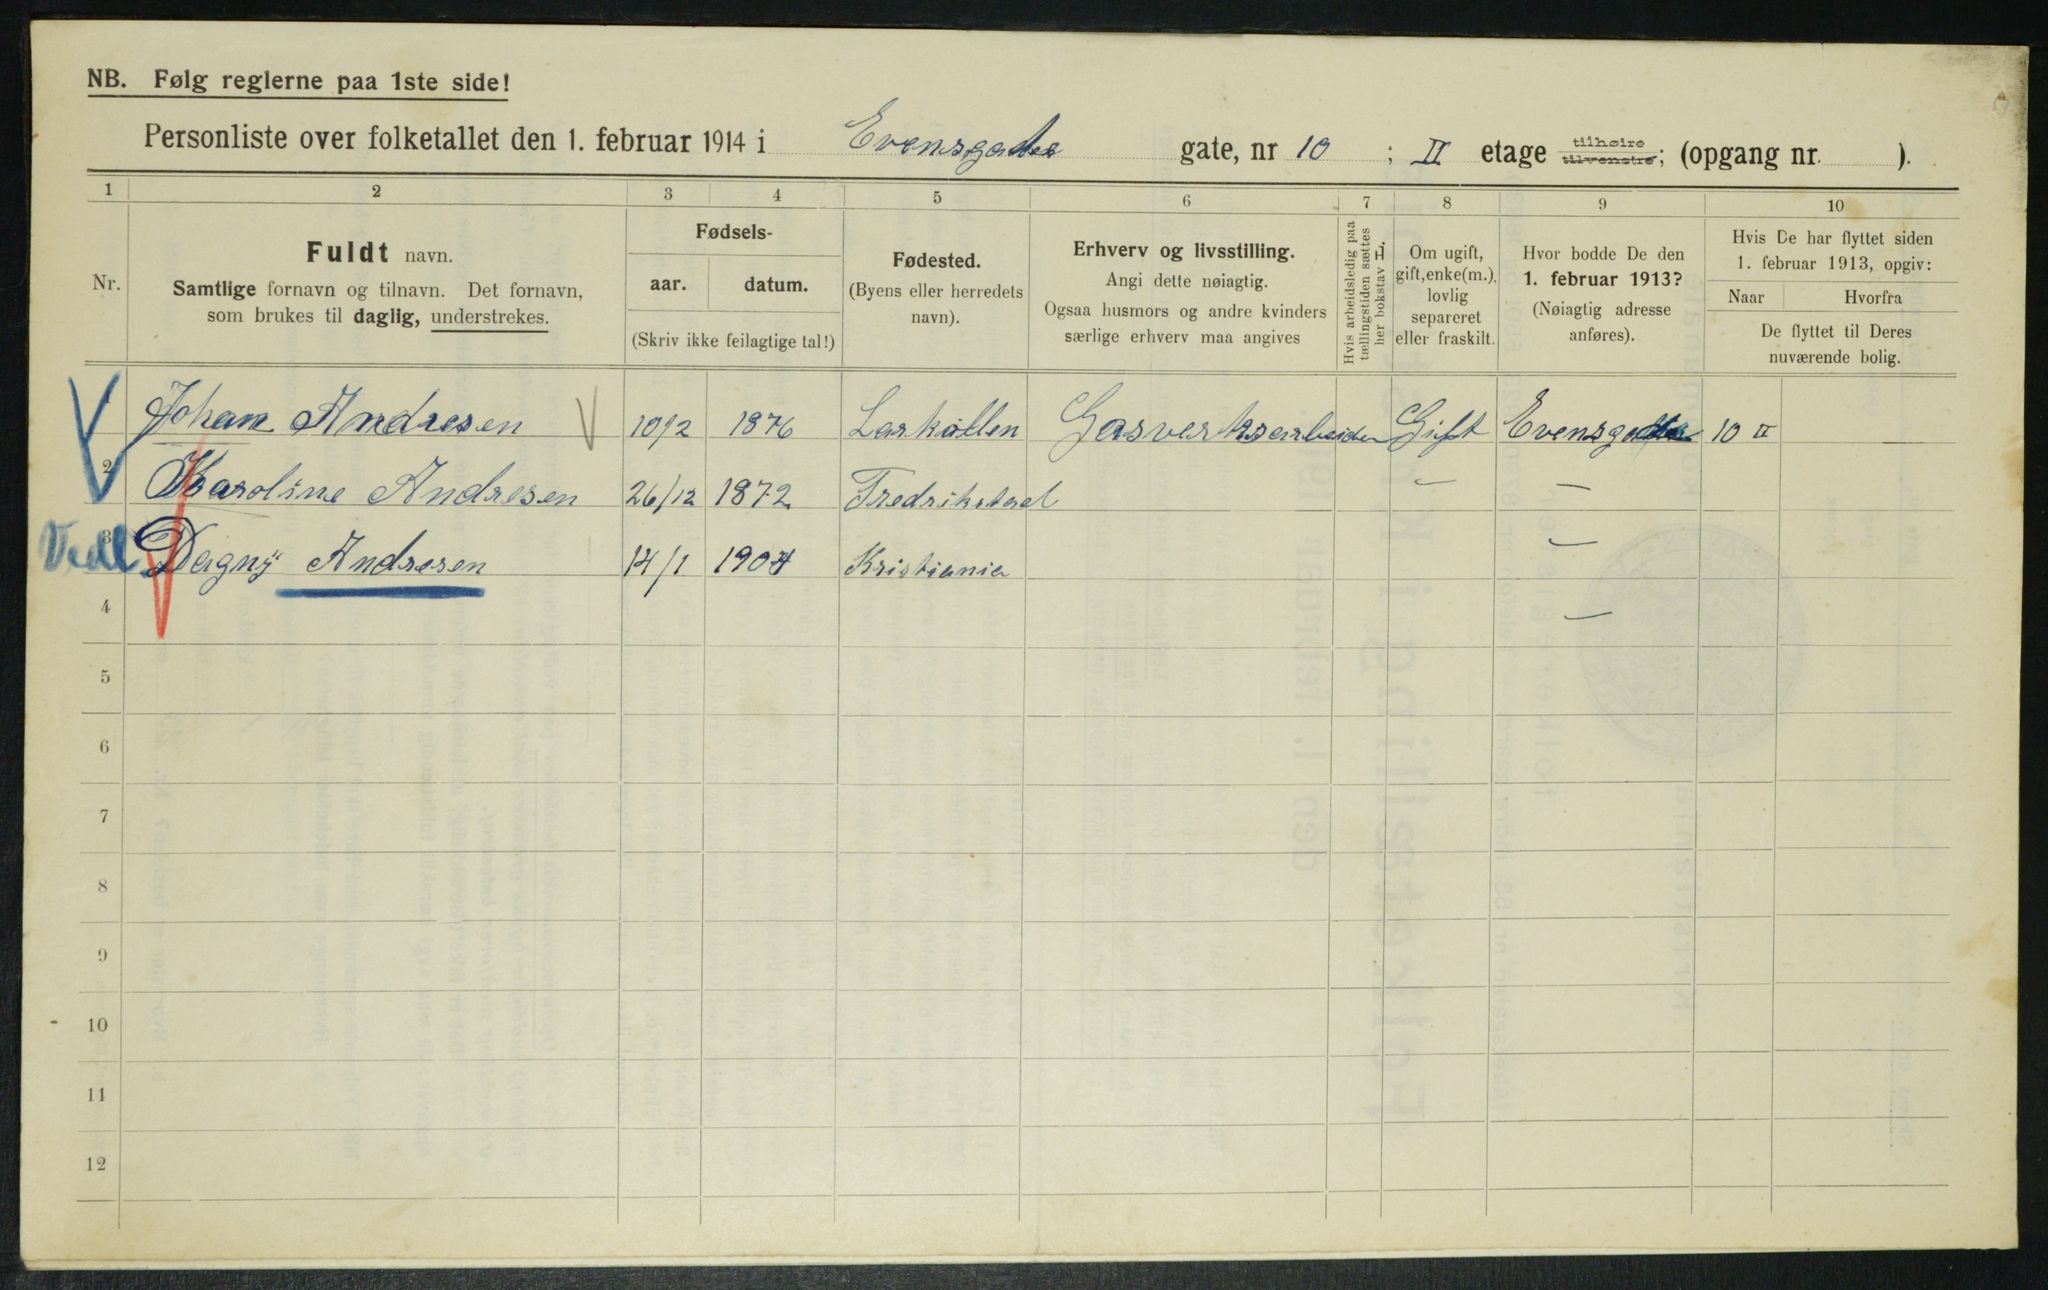 NB. Følg reglerne paa 1ste side!
Personliste over folketallet den 1. februar 1914 i Evensgaden gate, nr 10 ; II etage tilhøire tilvenstre; (opgang nr. ).
1 2 3 4 5 6 7 8 9 10
Nr.
Fuldt navn.
Samtlige fornavn og tilnavn. Det fornavn,
som brukes til daglig, understrekes.
Fødsels-
aar. datum.
(Skriv ikke feilagtige tal!)
Fødested.
(Byens eller herredets
navn).
Erhverv og livsstilling.
Angi dette nøiagtig.
Ogsaa husmors og andre kvinders
særlige erhverv maa angives
Hvis arbeidsledig paa
tællingstiden sættes
her bokstav L.
Om ugift,
gift, enke(m.),
lovlig
separeret
eller fraskilt.
Hvor bodde De den
1. februar 1913?
(Nøiagtig adresse
anføres).
Hvis De har flyttet siden
1. februar 1913, opgiv:
Naar Hvorfra
De flyttet til Deres
nuværende bolig.
1 Johan Andresen 10/2 1876 Larkollen Gasverksarbeider Gift 10 II
2 Karoline Andresen 26/12 1872 Fredrikstad — —
3 Dagny Andresen 14/1 1904 Kristiania —
4 —
5
6
7
8
9
10
11
12